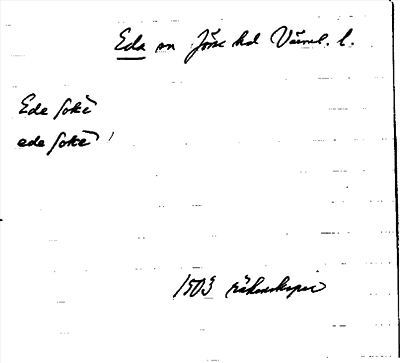 Eda sn Jösse hd Värml. l.
Ede sokn
ede sokn
1503 räkenskaper